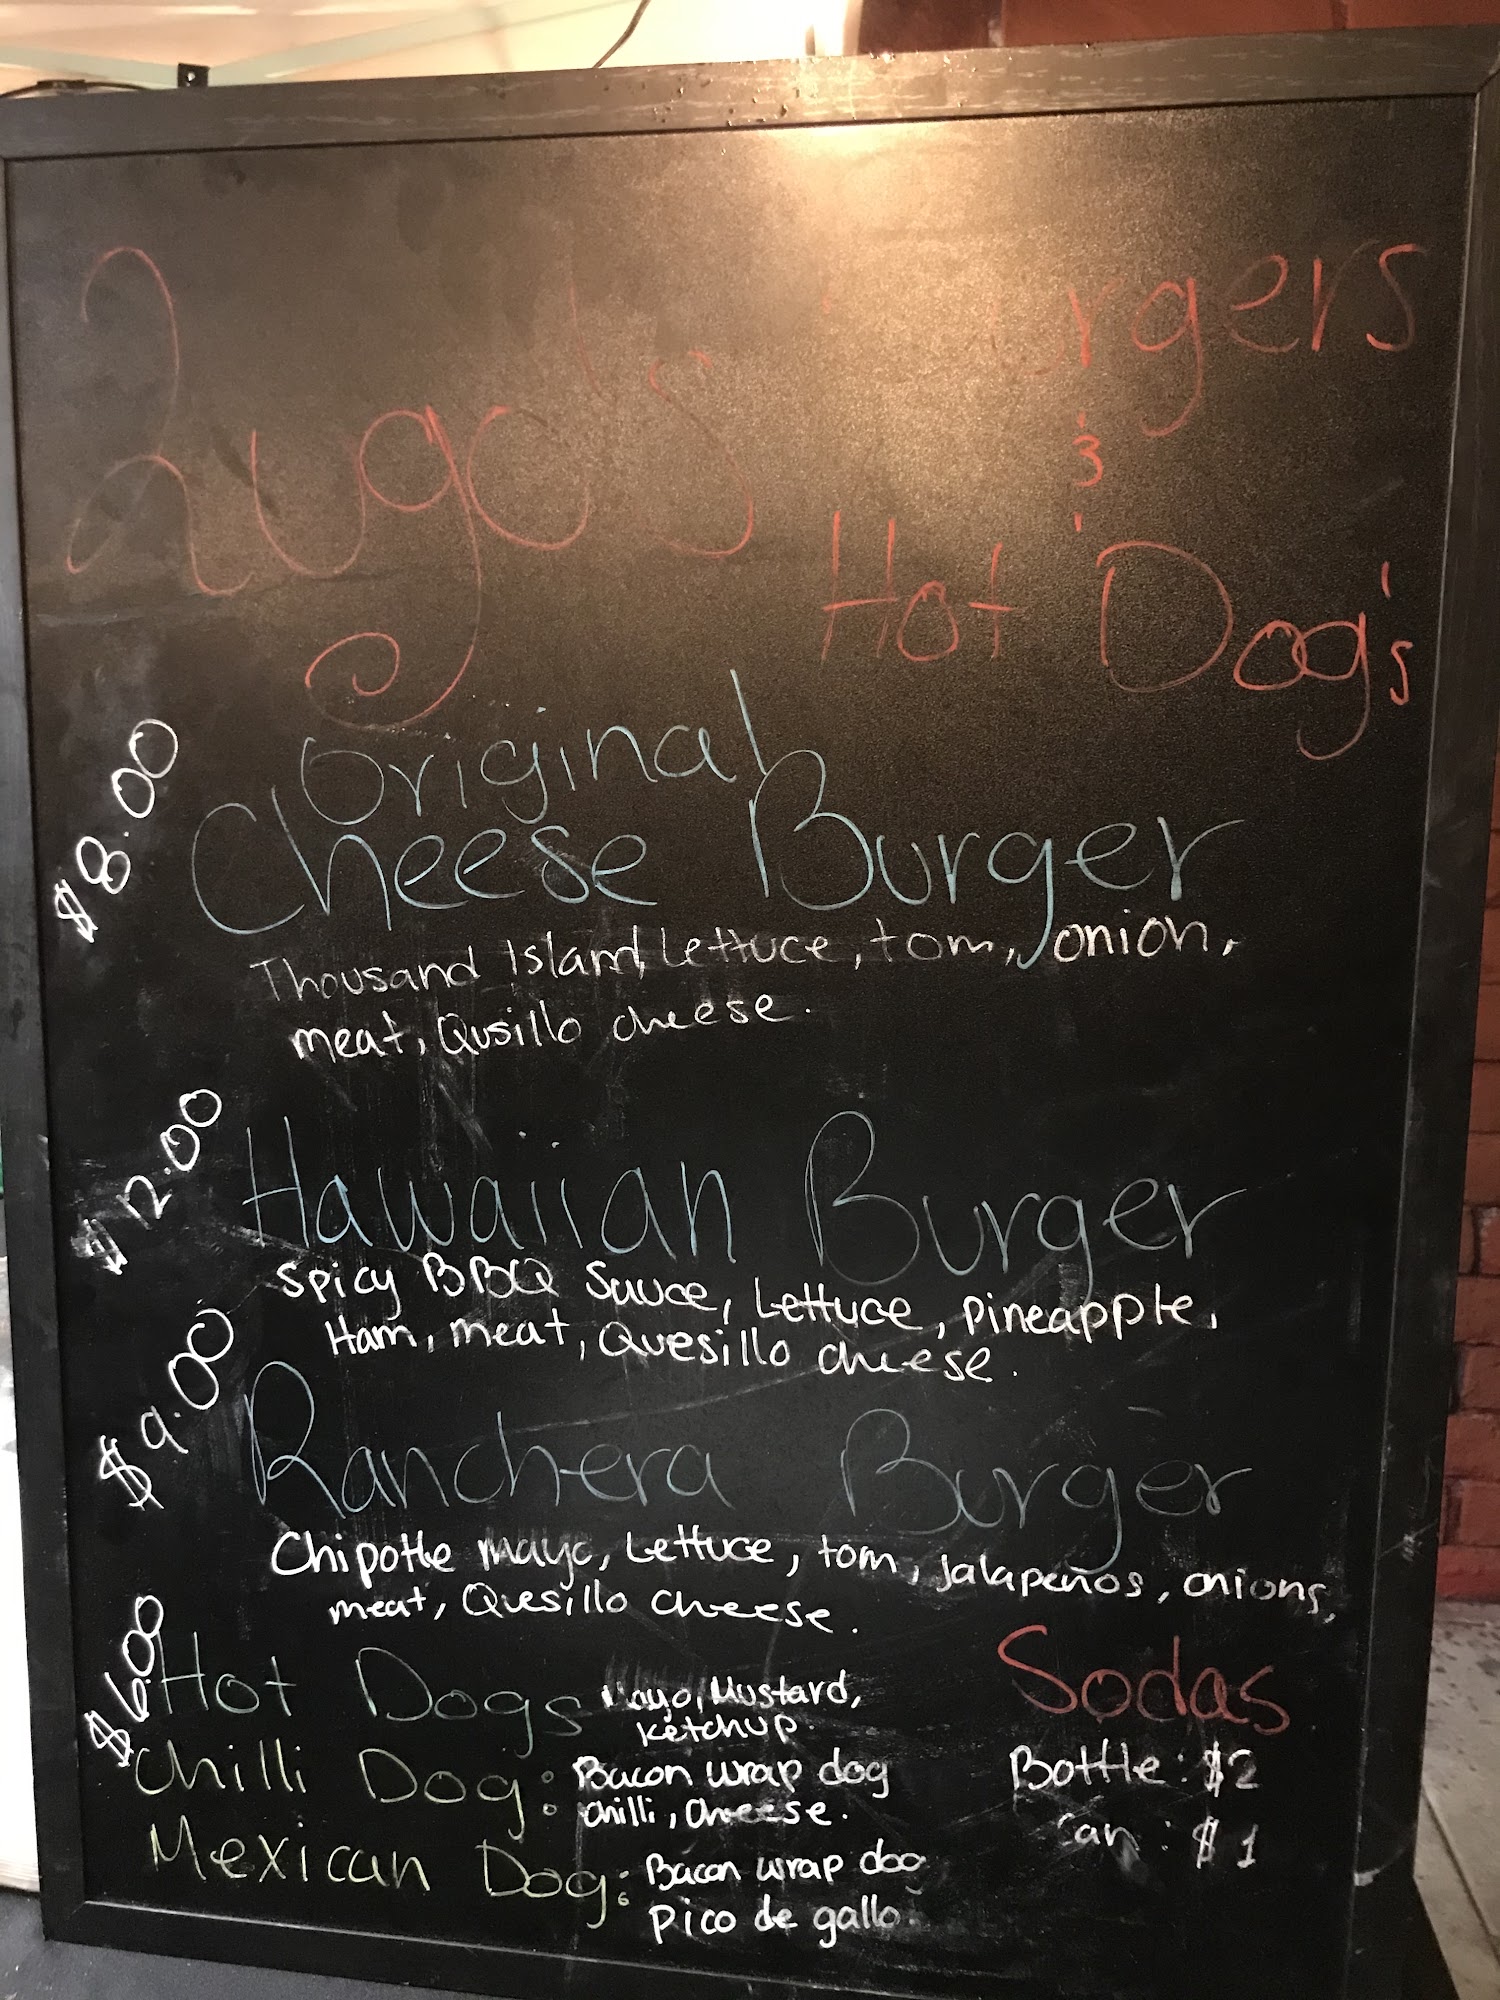 Lugo's
rgers
&
Hot Dog's
$8.00
Original
Cheese Burger
Thousand Island, Lettuce, tom, onion,
meat, Qusillo cheese.
$12.00
Hawaiian Burger
Spicy BBQ Sauce, Lettuce, Pineapple,
Ham, meat, Quesillo cheese.
$9.00
Ranchera Burger
Chipotle mayo, Lettuce, tom, jalapeños, onions,
meat, Quesillo cheese.
$6.00
Hot Dogs Mayo, Mustard,
Ketchup.
Chilli Dog: Bacon wrap dog
chilli, Cheese.
Mexican Dog: Bacon wrap dog
pico de gallo.
Sodas
Bottle: $2
Can: $1